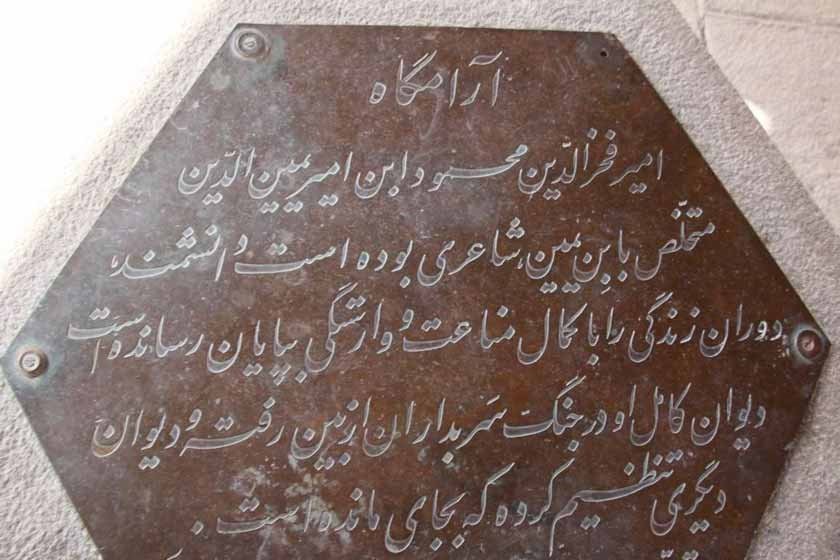 آرامگاه
امیر فخرالدّین محمود ابن امیر یمین الدّین
متخلّص بابن یمین، شاعری بوده است دانشمند،
دوران زندگی را با کمال مناعت و وارستگی بپایان رسانده است
دیوان کامل او در جنگ سربداران از بین رفته و دیوان
دیگری تنظیم کرده که بجای مانده است.